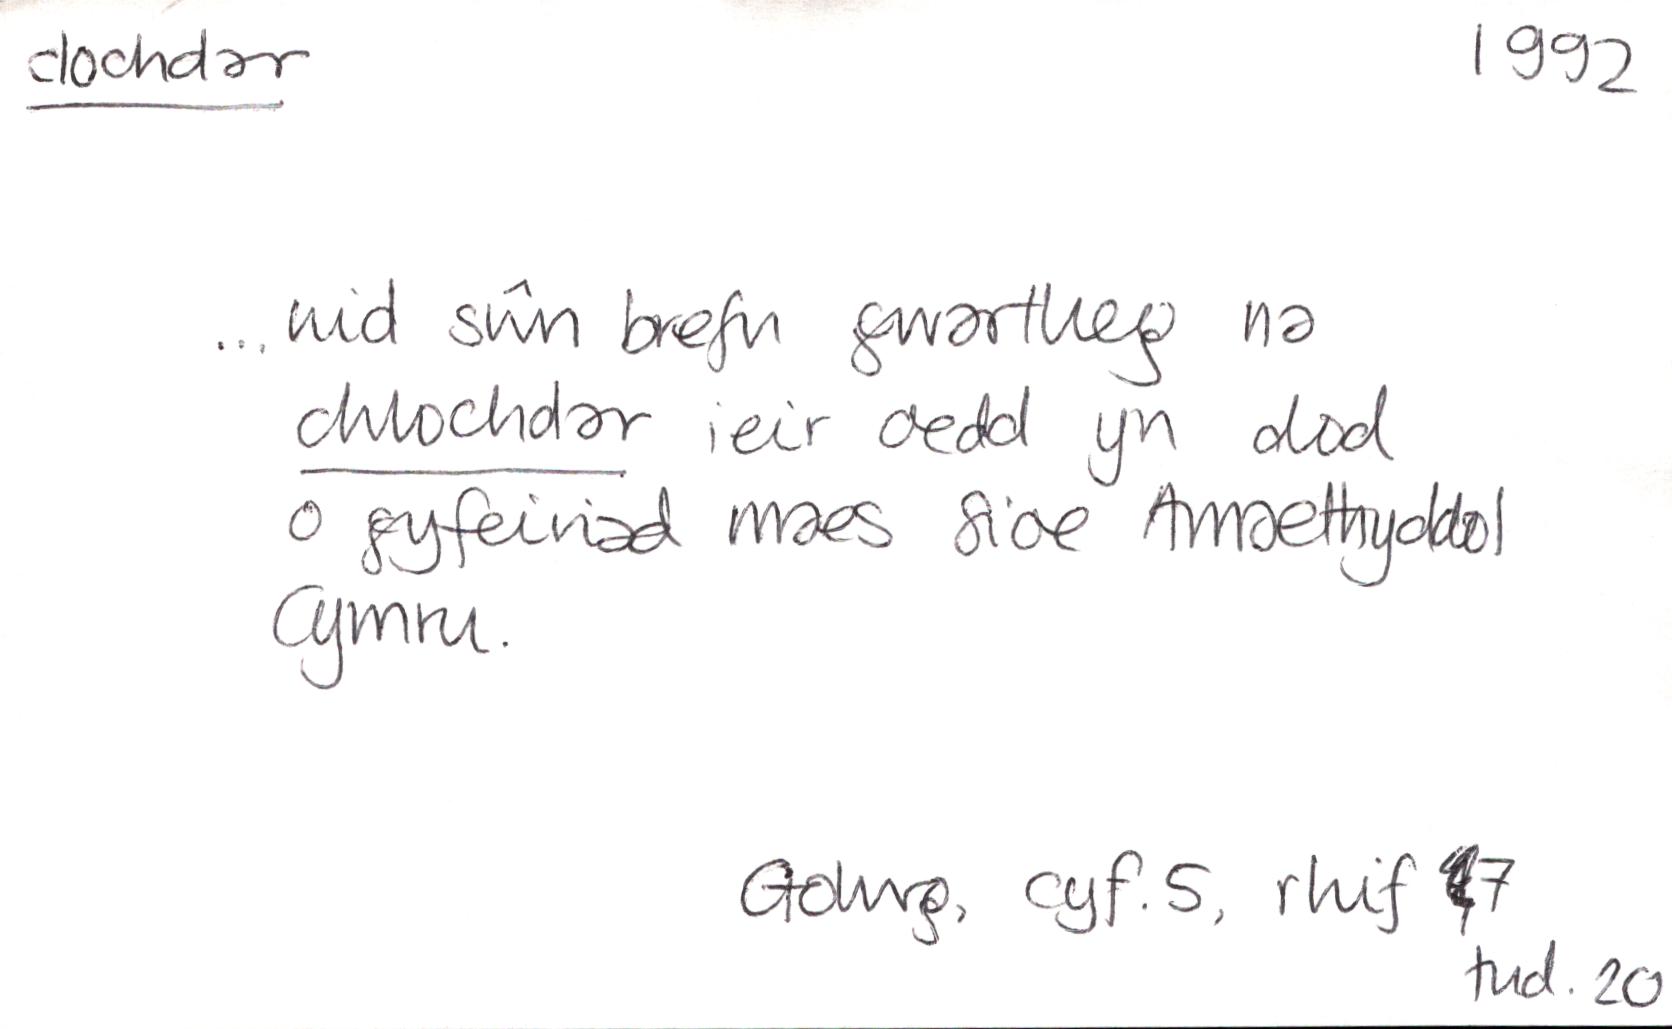 clochdar 1992
... nid sŵn brefu gwartheg na
chlochdar ieir oedd yn dod
o gyfeiriad maes Sioe Amaethyddol
Cymru.
Golwg, cyf. 5, rhif 7
tud. 20